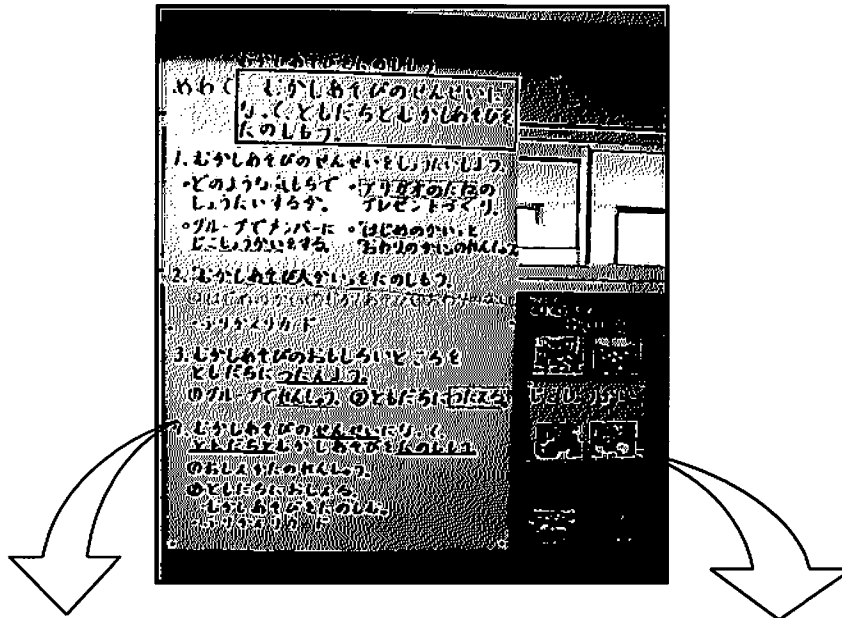 めあて
むかしあそびのせんせいに
なって、ともだちとむかしあそびを
たのしもう。
1.むかしあそびのせんせいをしょうたいしよう。
・どのような気もちで
しょうたいするか。
・アサガオのたねの
プレゼントづくり。
・グループでメンバーに
じこしょうかいをする。
・「はじめのかい」と
「おわりのかい」のれんしゅう
2.「むかしあそび人かい」をたのしもう。
・ふりかえりカード
3.むかしあそびのおもしろいところを
ともだちにつたえよう。
①グループでれんしゅう。②ともだちにつたえる。
むかしあそびのせんせいになって、
ともだちとむかしあそびをたのしもう
①おしえかたのれんしゅう。
②ともだちにおしえる。
むかしあそびをたのしむ。
・ふりかえりカード
じこしょうかい